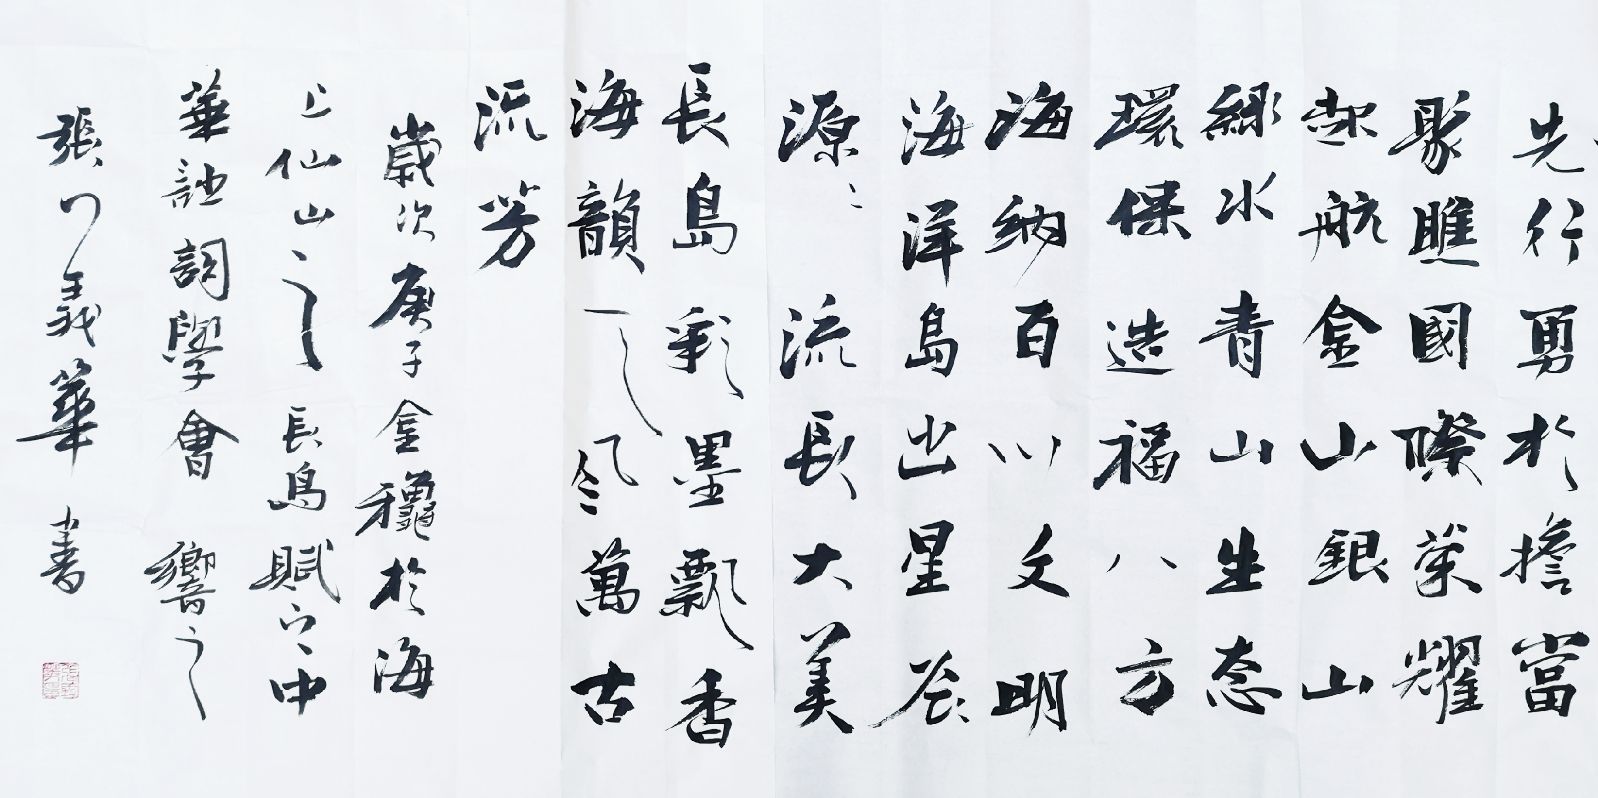 先行勇於擔當
聚瞧國際榮耀
起航金山銀山
綠水青山生态
環保造福八方
海納百川文明
海洋島出星辰
源〻流長大美
長島彩墨飄香
海韻之风萬古
流芳
歲次庚子金穐於海
上仙山之長島賦之中
華詩詞學會響之
張門義華書